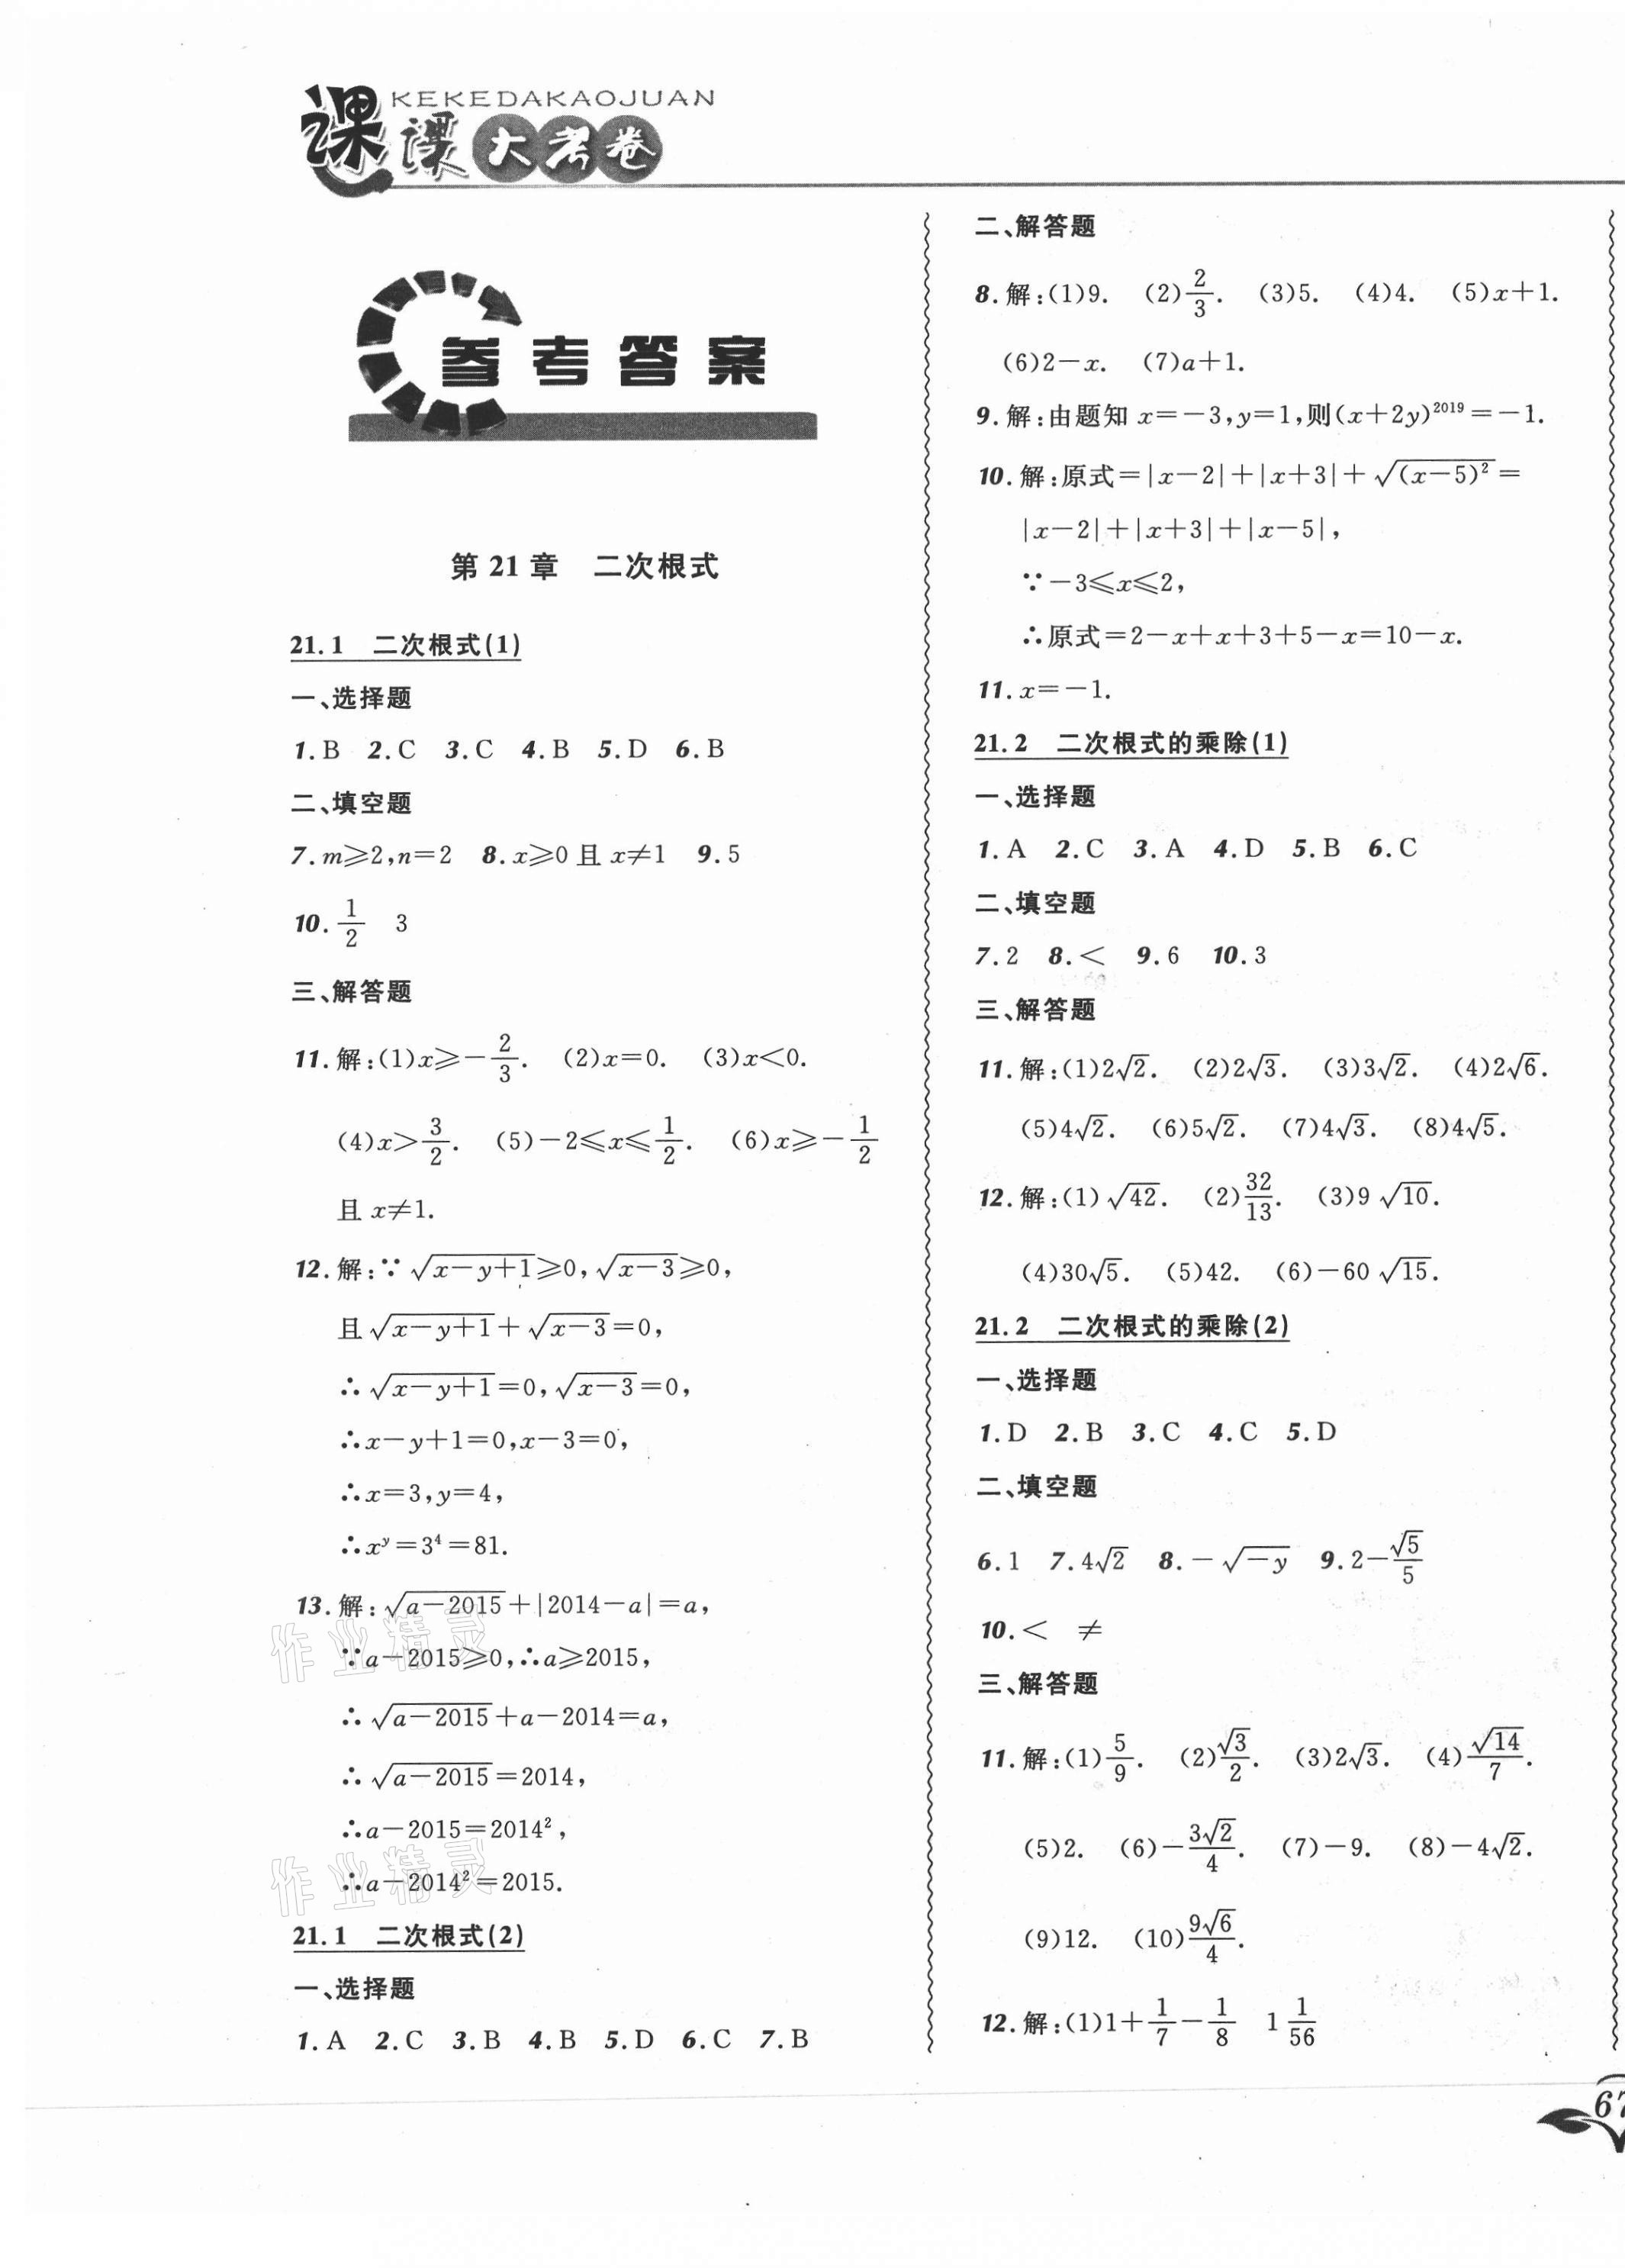 KEKEDAKAOJUAN
课课大考卷
参考答案
第 21 章 二次根式
21.1 二次根式(1)
一、选择题
1.B 2.C 3.C 4.B 5.D 6.B
二、填空题
7.m⩾2,n=2 8.x⩾0 且 x≠1 9.5
10.1/2 3
三、解答题
11.解:(1)x⩾-2/3. (2)x=0. (3)x<0.
(4)x>3/2. (5)-2⩽x⩽1/2. (6)x⩾-1/2
且 x≠1.
12.解:∵√(x-y+1)⩾0,√(x-3)⩾0,
且√(x-y+1)+√(x-3)=0,
∴√(x-y+1)=0,√(x-3)=0,
∴x-y+1=0,x-3=0,
∴x=3,y=4,
∴xʸ=3⁴=81.
13.解:√(a-2015)+|2014-a|=a,
∵a-2015⩾0,∴a⩾2015,
∴√(a-2015)+a-2014=a,
∴√(a-2015)=2014,
∴a-2015=2014²,
∴a-2014²=2015.
作业精灵
作业精灵
21.1 二次根式(2)
一、选择题
1.A 2.C 3.B 4.B 5.D 6.C 7.B
二、解答题
8.解:(1)9. (2)2/3. (3)5. (4)4. (5)x+1.
(6)2-x. (7)a+1.
9.解:由题知 x=-3,y=1,则(x+2y)²⁰¹⁹=-1.
10.解:原式=|x-2|+|x+3|+√((x-5)²)=
|x-2|+|x+3|+|x-5|,
∵-3⩽x⩽2,
∴原式=2-x+x+3+5-x=10-x.
11.x=-1.
21.2 二次根式的乘除(1)
一、选择题
1.A 2.C 3.A 4.D 5.B 6.C
二、填空题
7.2 8.< 9.6 10.3
三、解答题
11.解:(1)2√2. (2)2√3. (3)3√2. (4)2√6.
(5)4√2. (6)5√2. (7)4√3. (8)4√5.
12.解:(1)√42. (2)32/13. (3)9√10.
(4)30√5. (5)42. (6)-60√15.
21.2 二次根式的乘除(2)
一、选择题
1.D 2.B 3.C 4.C 5.D
二、填空题
6.1 7.4√2 8.-√(-y) 9.2-√5/5
10.< ≠
三、解答题
11.解:(1)5/9. (2)√3/2. (3)2√3. (4)√14/7.
(5)2. (6)-3√2/4. (7)-9. (8)-4√2.
(9)12. (10)9√6/4.
12.解:(1)1+1/7-1/8 1 1/56
67